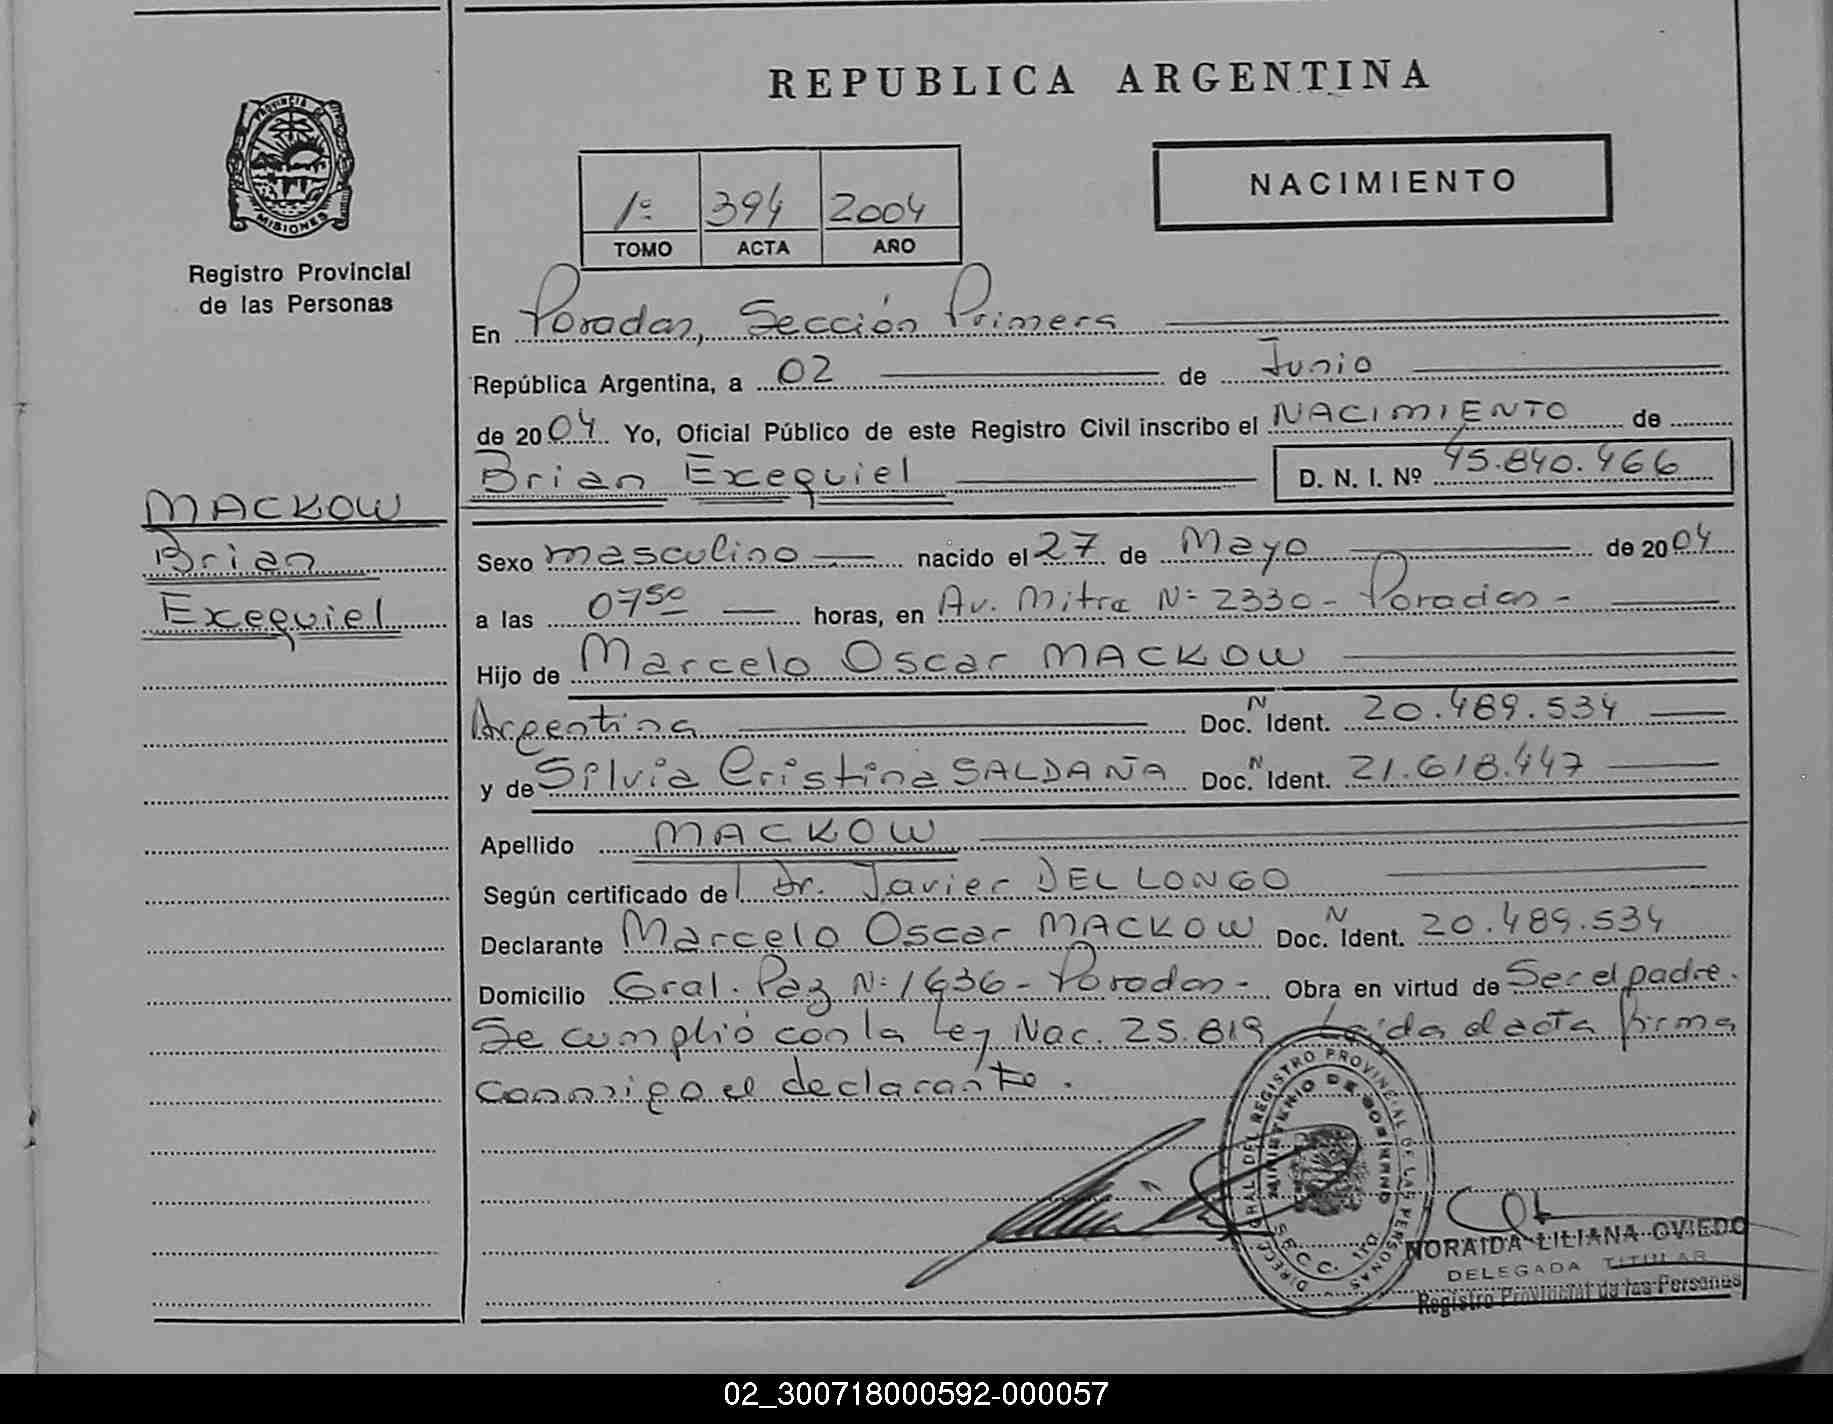 REPUBLICA ARGENTINA
PROVINCIA DE
MISIONES
Registro Provincial
de las Personas
1º 394 2004
TOMO ACTA AÑO
NACIMIENTO
En Posadas, Sección Primera
República Argentina, a 02 de Junio
de 2004 Yo, Oficial Público de este Registro Civil inscribo el NACIMIENTO de
Brian Exequiel D. N. I. Nº 45.840.466
MACKOW
Brian
Exequiel
Sexo masculino nacido el 27 de Mayo de 2004
a las 07 50 horas, en Av. Mitre Nº 2330 - Posadas -
Hijo de Marcelo Oscar MACKOW
Argentina Doc. N Ident. 20.489.534
y de Silvia Cristina SALDAÑA Doc. N Ident. 21.618.447
Apellido MACKOW
Según certificado de Dr. Javier DEL LONGO
Declarante Marcelo Oscar MACKOW Doc. N Ident. 20.489.534
Domicilio Gral. Paz Nº 1636 - Posadas - Obra en virtud de Ser el padre.
Se cumplió con la Ley Nac. 25.819 Leída el acta firma
conmigo el declarante.
DIRECC. GRAL DEL REGISTRO PROVINCIAL DE LAS PERSONAS
MINISTERIO DE GOBIERNO
SECC. 1RA
NORAIDA LILIANA OVIEDO
DELEGADA TITULAR
Registro Provincial de las Personas
02_300718000592-000057